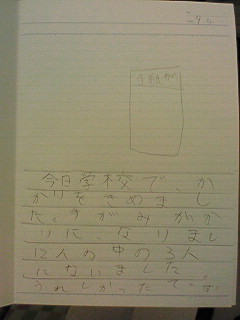 手紙が
今日学校で、か
かりをきめまし
た。手がみがか
りに、なりまし
12人の中の3人
になりました。
うれしかったです。